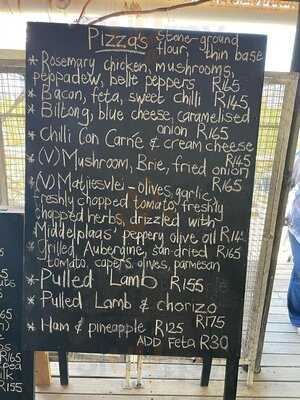 Pizza's stone-ground
flour, thin base
* Rosemary chicken, mushrooms,
peppadew, belle peppers R165
* Bacon, feta, sweet chilli R145
* Biltong, blue cheese, caramelised
onion R165
* Chilli Con Carné & cream cheese
R145
* (V) Mushroom, Brie, fried onion
R165
* (V) Matjiesvlei - olives, garlic
freshly chopped tomato, freshly
chopped herbs, drizzled with
Middelplaas' peppery olive oil
* Grilled Aubergine, sun-dried R165
tomato capers, olives, parmesan
* Pulled Lamb R155
* Pulled Lamb & chorizo
R175
* Ham & pineapple R125
ADD Feta R30
R165
R165
R155